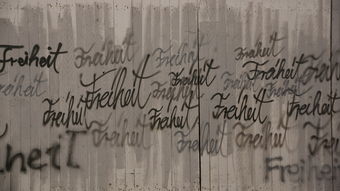 Freiheit Freiheit Freiheit Freiheit
Freiheit Freiheit Freiheit Freiheit Freiheit
Freiheit Freiheit Freiheit Freiheit Freiheit Freiheit
Freiheit Freiheit Freiheit Freiheit Freiheit
heit Freiheit